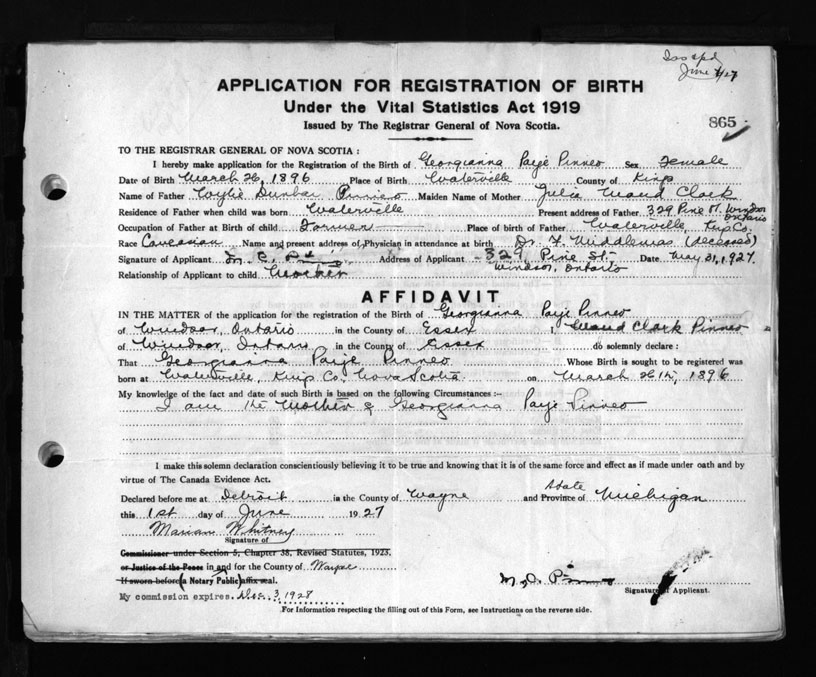 June 7/27
APPLICATION FOR REGISTRATION OF BIRTH
Under the Vital Statistics Act 1919
Issued by The Registrar General of Nova Scotia.
865
TO THE REGISTRAR GENERAL OF NOVA SCOTIA :
I hereby make application for the Registration of the Birth of Georgianna Paije Pinneo Sex Female
Date of Birth March 26, 1896 Place of Birth Waterville County of Kings
Name of Father Wylie Dunbar Pinneo Maiden Name of Mother Julia Maud Clark
Residence of Father when child was born Waterville Present address of Father 329 Pine St. Windsor Ontario
Occupation of Father at Birth of child Farmer Place of birth of Father Waterville, Kings Co.
Race Caucasian Name and present address of Physician in attendance at birth Dr. F. Middlemas (deceased)
Signature of Applicant Address of Applicant 329 Pine St. Windsor, Ontario Date May 31, 1927.
Relationship of Applicant to child Mother
AFFIDAVIT
IN THE MATTER of the application for the registration of the Birth of Georgianna Paije Pinneo
of Windsor, Ontario in the County of Essex I, Maud Clark Pinneo
of Windsor, Ontario in the County of Essex do solemnly declare :
That Georgianna Paije Pinneo Whose Birth is sought to be registered was
born at Waterville, Kings Co. Nova Scotia on March 26th, 1896
My knowledge of the fact and date of such Birth is based on the following Circumstances :-
I am the Mother of Georgianna Paije Pinneo
I make this solemn declaration conscientiously believing it to be true and knowing that it is of the same force and effect as if made under oath and by
virtue of The Canada Evidence Act.
Declared before me at Detroit in the County of Wayne and State Province of Michigan
this 1st day of June 1927
Marian Whitney
Signature of
Commissioner under Section 5, Chapter 38, Revised Statutes, 1923.
or Justice of the Peace in and for the County of Wayne
If sworn before (a Notary Public) affix seal.
M. Pinneo
Signature of Applicant.
My commission expires. Dec. 3, 1928
For Information respecting the filling out of this Form, see Instructions on the reverse side.